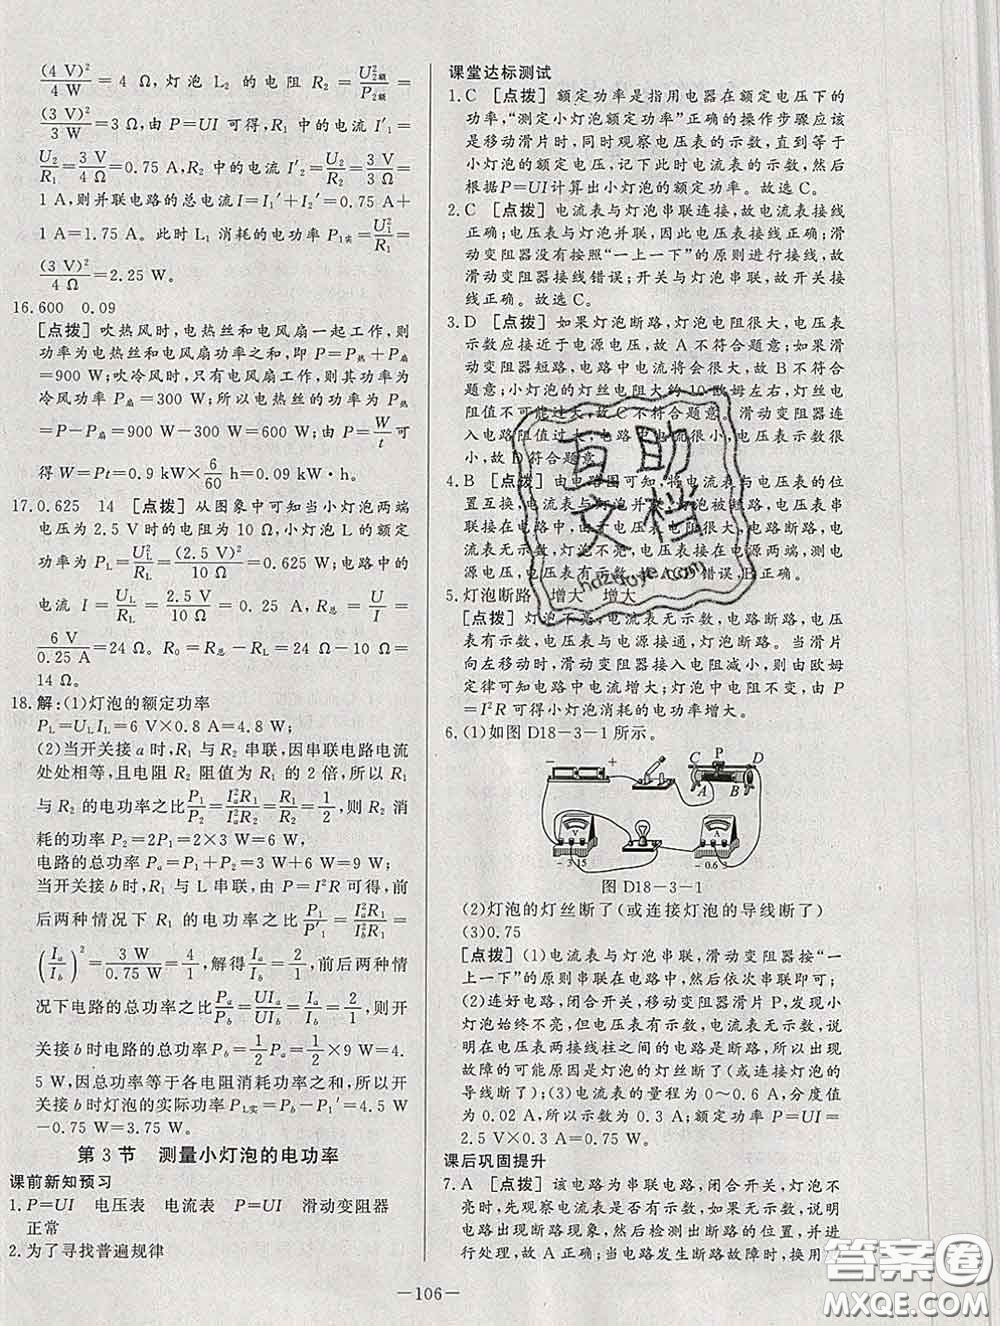 (4 V)²/4 W = 4 Ω,灯泡 L₂ 的电阻 R₂ = U₂额²/P₂额 =
(3 V)²/3 W = 3 Ω,由 P=UI 可得,R₁ 中的电流 I′₁ =
U₂/R₁ = 3 V/4 Ω = 0.75 A,R₂ 中的电流 I′₂ = U₂/R₂ = 3 V/3 Ω =
1 A,则并联电路的总电流 I=I₁′+I₂′=0.75 A+
1 A=1.75 A。此时 L₁ 消耗的电功率 P₁实 = U₂²/R₁ =
(3 V)²/4 Ω = 2.25 W。
16.600 0.09
[点拨] 吹热风时,电热丝和电风扇一起工作,则
功率为电热丝和电风扇功率之和,即 P=P热+P扇
=900 W;吹冷风时,只有电风扇工作,则其功率为
冷风功率 P扇=300 W;所以电热丝的功率为 P热
=P-P扇=900 W-300 W=600 W;由 P=W/t 可
得 W=Pt=0.9 kW×6/60 h=0.09 kW·h。
17.0.625 14 [点拨] 从图象中可知当小灯泡两端
电压为 2.5 V 时的电阻为 10 Ω,小灯泡 L 的额定
功率为 P_L=U_L²/R_L=(2.5 V)²/10 Ω=0.625 W;电路中的
电流 I=U_L/R_L=2.5 V/10 Ω=0.25 A,R总=U/I=
6 V/0.25 A=24 Ω。R₀=R总-R_L=24 Ω-10 Ω=
14 Ω。
18.解:(1)灯泡的额定功率
P_L=U_L I_L=6 V×0.8 A=4.8 W;
(2)当开关接 a 时,R₁ 与 R₂ 串联,因串联电路电流
处处相等,且电阻 R₂ 阻值为 R₁ 的 2 倍,所以 R₁
与 R₂ 的电功率之比 P₁/P₂=Iₐ²R₁/Iₐ²R₂=R₁/R₂=1/2,则 R₂ 消
耗的功率 P₂=2P₁=2×3 W=6 W,
电路的总功率 Pₐ=P₁+P₂=3 W+6 W=9 W;
当开关接 b 时,R₁ 与 L 串联,由 P=I²R 可得,前
后两种情况下 R₁ 的电功率之比 P₁/P′₁=Iₐ²R₁/I_b²R₁=
(Iₐ/I_b)²=3 W/0.75 W=4/1,解得 Iₐ/I_b=2/1,前后两种情
况下电路的总功率之比 Pₐ/P_b=UIₐ/UI_b=Iₐ/I_b=2/1,则开
关接 b 时电路的总功率 P_b=1/2 Pₐ=1/2×9 W=4.
5 W,因总功率等于各电阻消耗功率之和,所以开
关接 b 时灯泡的实际功率 P_L实=P_b-P₁′=4.5 W
-0.75 W=3.75 W。
第 3 节 测量小灯泡的电功率
课前新知预习
1.P=UI 电压表 电流表 P=UI 滑动变阻器
正常
2.为了寻找普遍规律
课堂达标测试
1.C [点拨] 额定功率是指用电器在额定电压下的
功率,“测定小灯泡额定功率”正确的操作步骤应该
是移动滑片时,同时观察电压表的示数,直到等于
小灯泡的额定电压,记下此时电流表的示数,然后
根据 P=UI 计算出小灯泡的额定功率。故选 C。
2.C [点拨] 电流表与灯泡串联连接,故电流表接线
正确;电压表与灯泡并联,因此电压表接线正确;滑
动变阻器没有按照“一上一下”的原则进行接线,故
滑动变阻器接线错误;开关与灯泡串联,故开关接
线正确。故选 C。
3.D [点拨] 如果灯泡断路,灯泡电阻很大,电压表
示数应接近于电源电压,故 A 不符合题意;如果滑
动变阻器短路,电路中电流将会很大,故 B 不符合
题意;小灯泡的灯丝电阻大约 10 欧姆左右,灯丝电
阻值不可能过大,故 C 不符合题意。滑动变阻器连
入电路阻值过大,电路中电流很小,电压表示数很
小,故 D 符合题意。
4.B [点拨] 由电路图可知,将电流表与电压表的位
置互换,电流表与灯泡并联,电压表与滑动变阻器串
联接在电路中,电压表电阻很大,电路断路,电
流表无示数,灯泡不亮,电压表接在电源两端,测电
源电压,电压表有示数,故 A、C、D 错误,B 正确。
5.灯泡断路 增大 增大
[点拨] 灯泡不亮,电流表无示数,电路断路,电压
表有示数,电压表与电源接通,灯泡断路。当滑片
向左移动时,滑动变阻器接入电阻减小,则由欧姆
定律可知电路中电流增大;灯泡中电阻不变,由 P
=I²R 可得小灯泡消耗的电功率增大。
6.(1)如图 D18-3-1 所示。
- + C P D
A B
V A
- 3 15 - 0.6 3
图 D18-3-1
(2)灯泡的灯丝断了(或连接灯泡的导线断了)
(3)0.75
[点拨] (1)电流表与灯泡串联,滑动变阻器按“一
上一下”的原则串联在电路中,然后依次串联即可;
(2)连好电路,闭合开关,移动变阻器滑片 P,发现小
灯泡始终不亮,但电压表有示数,电流表无示数,说
明在电压表两接线柱之间的电路是断路,所以出现
故障的可能原因是灯泡的灯丝断了(或连接灯泡的
导线断了);(3)电流表的量程为 0~0.6 A,分度值
为 0.02 A,所以示数为 0.3 A;额定功率 P=UI=
2.5 V×0.3 A=0.75 W。
课后巩固提升
7.A [点拨] 该电路为串联电路,闭合开关,灯泡不
亮时,先观察电流表是否有示数,如果无示数,说明
电路出现断路现象,然后检测出断路的位置,并进
行处理,故 A 正确;当电路发生断路故障时,换用
-106-
互助
文档
hdzuoye.com
答案圈
MXQE.COM